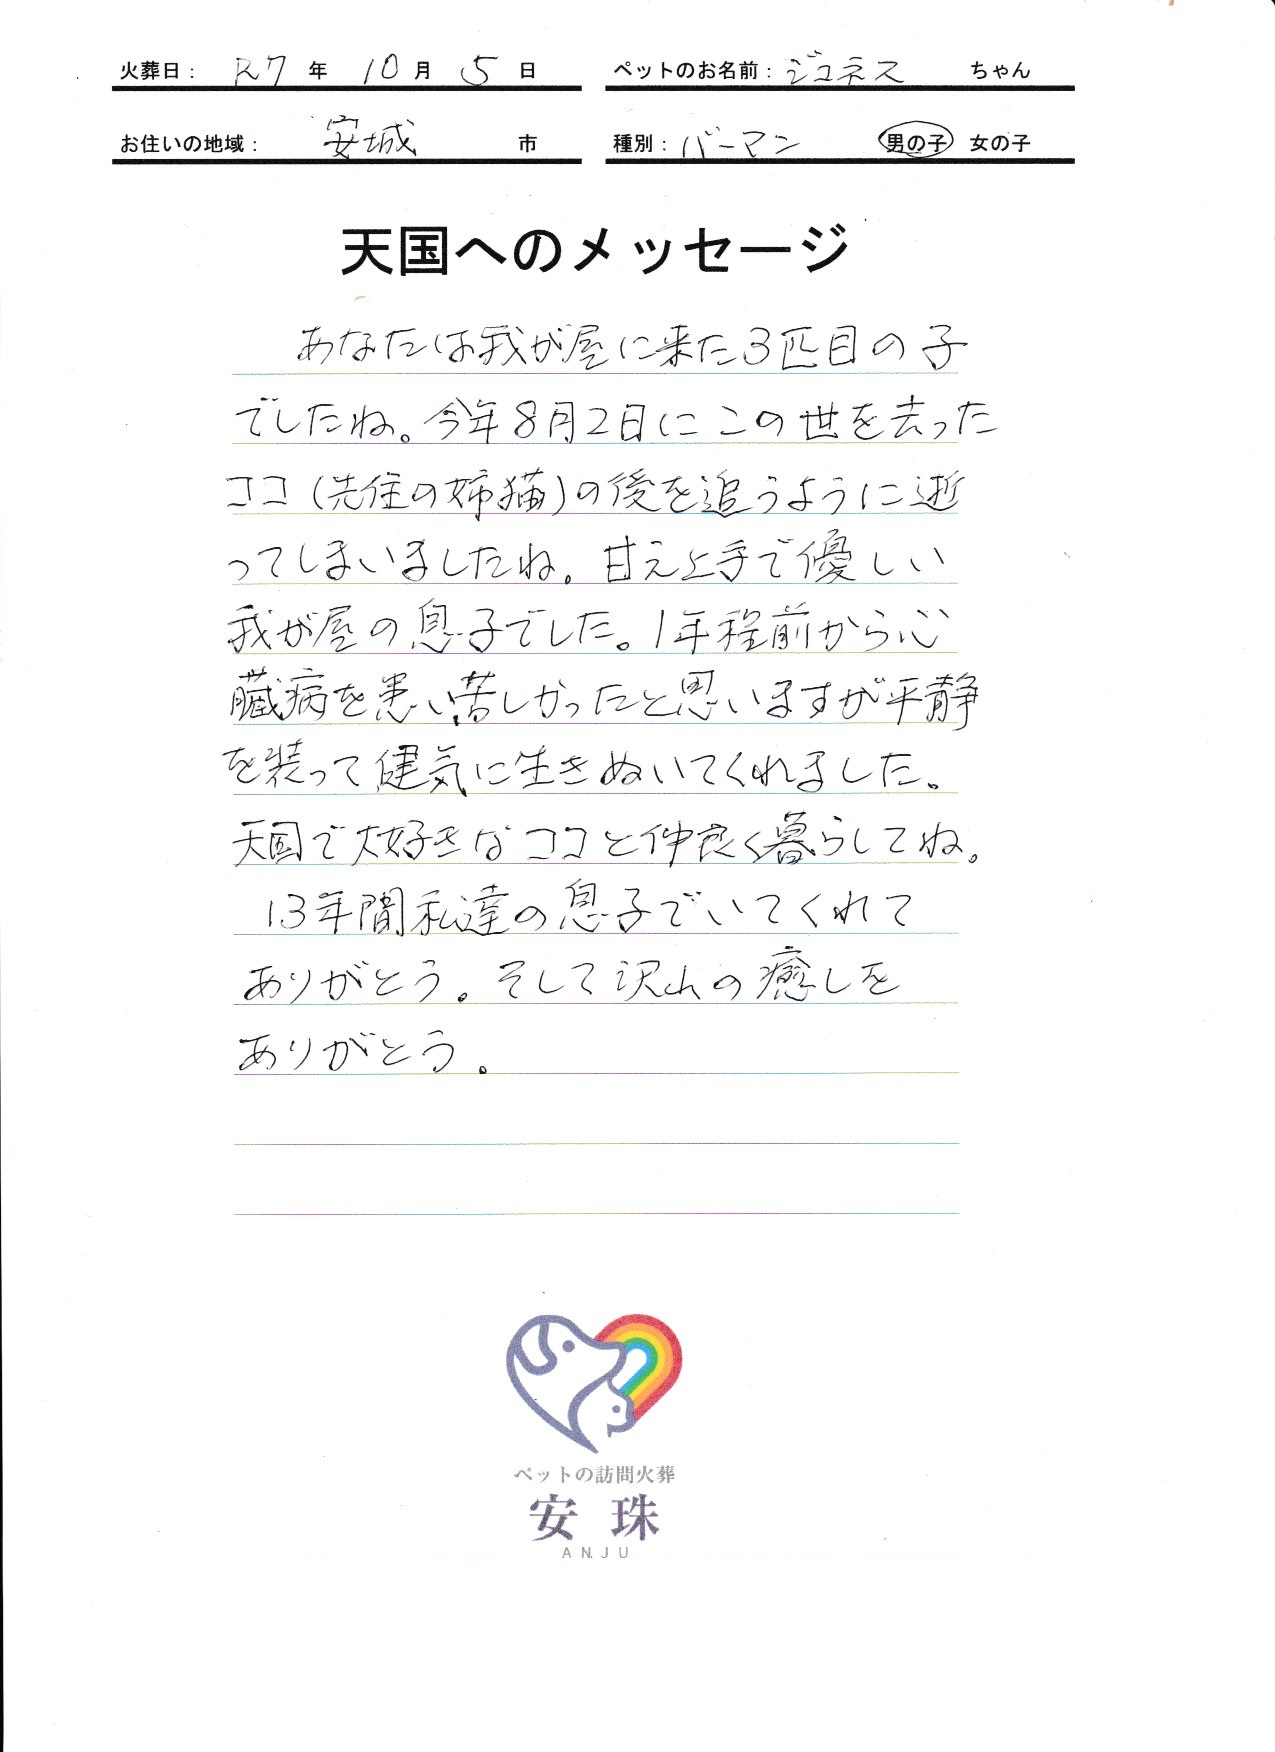 火葬日: R7 年 10 月 5 日 ペットのお名前: ジュネス ちゃん
お住いの地域: 安城 市 種別: バーマン 男の子 女の子
天国へのメッセージ
あなたは我が屋に来た3匹目の子
でしたね。今年8月2日にこの世を去った
ココ(先住の姉猫)の後を追うように逝
ってしまいましたね。甘え上手で優しい
我が屋の息子でした。1年程前から心
臓病を患い、苦しかったと思いますが平静
を装って健気に生きぬいてくれました。
天国で大好きなココと仲良く暮らしてね。
13年間私達の息子でいてくれて
ありがとう。そして沢山の癒しを
ありがとう。
ペットの訪問火葬
安珠
ANJU